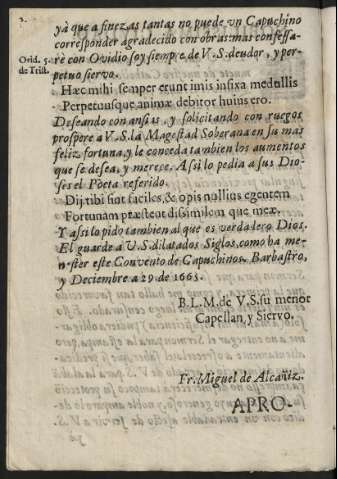 2.
yà que a finezas tantas no puede vn Capuchino
corresponder agradecido con obras: mas confessa-
rè con Ovidio soy siempre de V.S. deudor, y per-
petuo siervo.
Ovid. 5.
de Trist.
Hæc mihi semper erunt imis infixa medullis
Perpetuusque animæ debitor huius ero.
Deseando con ansias, y solicitando con ruegos
prospere a V.S. la Magestad Soberana en su mas
feliz fortuna, y le conceda tanbien los aumentos
que se desea, y merece. Assi lo pedia a sus Dio-
ses el Poeta referido.
Dij tibi sint faciles, & opis nullius egentem
Fortunam præstent disimilem que meæ.
Y assi lo pido tambien al que es verdadero Dios.
El guarde a V.S. dilatados Siglos, como ha me-
nester este Convento de Capuchinos. Barbastro,
y Deciembre a 29. de 1663.
B.L.M. de V.S. su menor
Capellan, y Siervo.
Fr. Miguel de Alcañiz.
APRO-